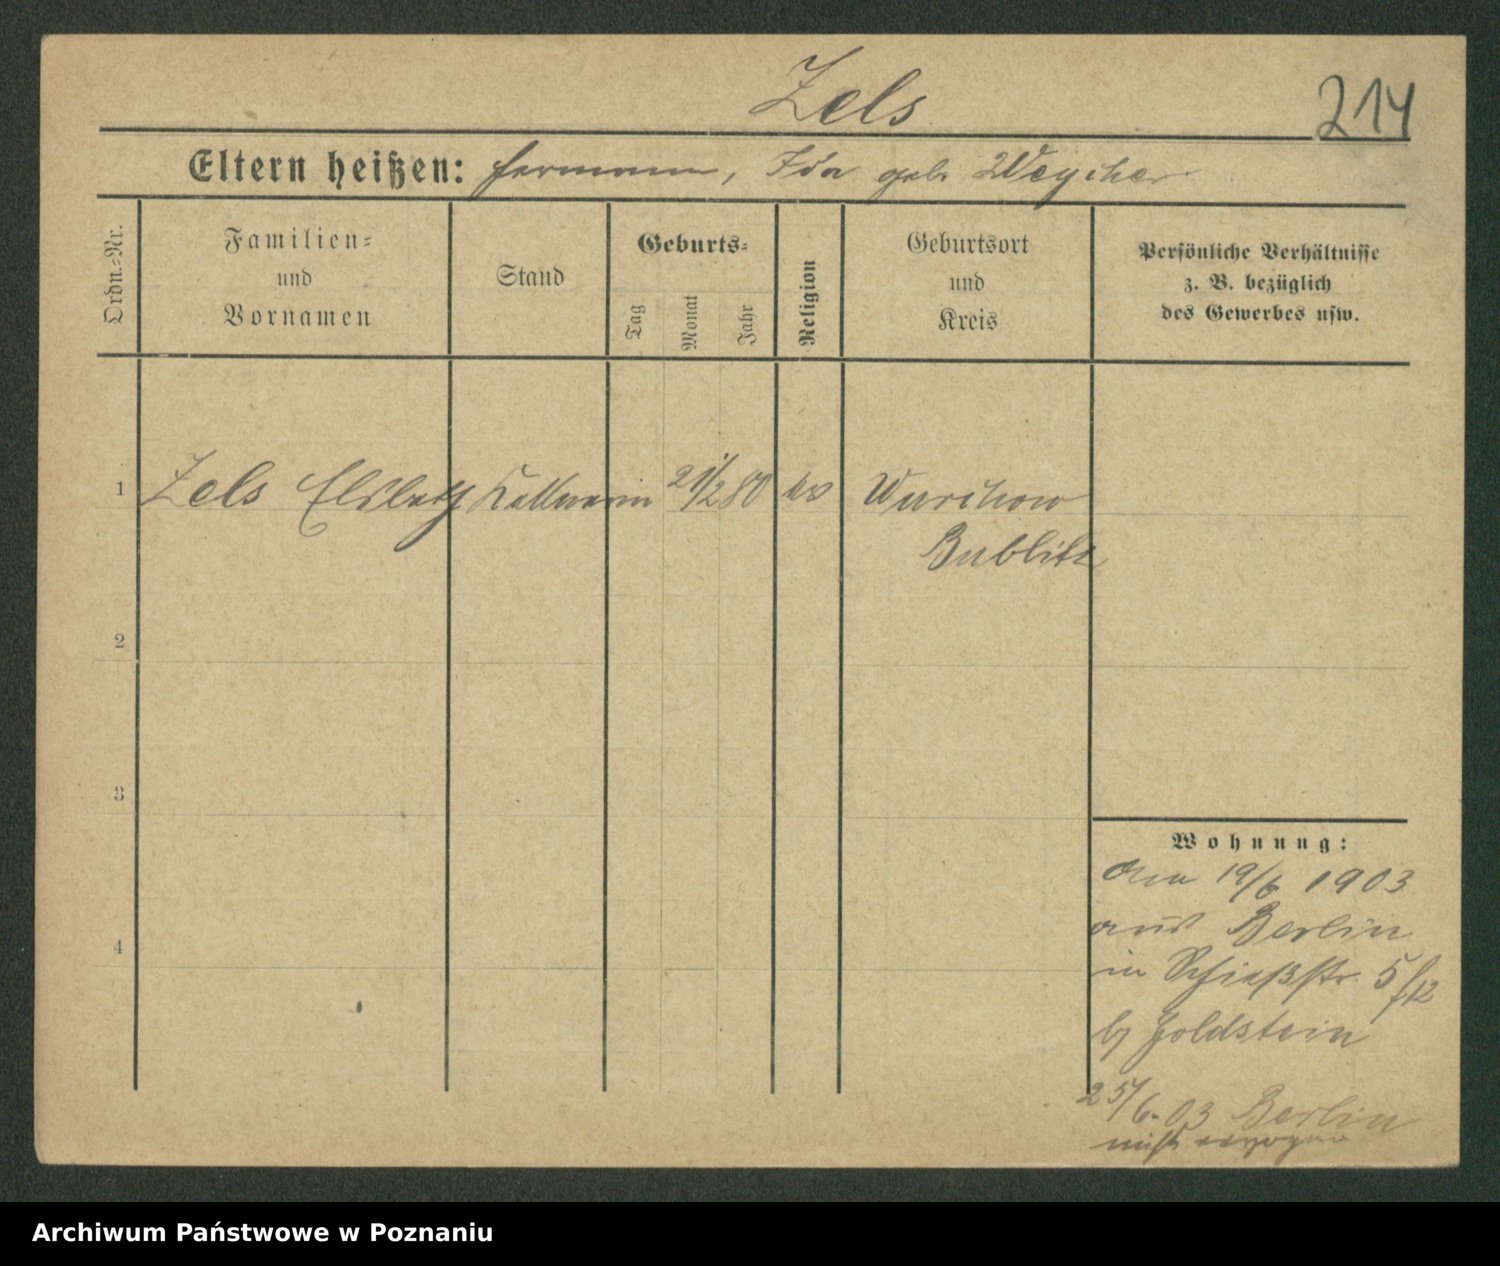 Zels
214
Eltern heißen: Hermann, Ida geb. Weycher
Ordn.-Nr.
Familien-
und
Vornamen
Stand
Geburts-
Tag
Monat
Jahr
Religion
Geburtsort
und
Kreis
Persönliche Verhältnisse
z. B. bezüglich
des Gewerbes usw.
1 Zels Elsbeth Kellnerin 21/2 80 ev Wurchow
Bublitz
2
3
4
Wohnung:
den 19/6 1903
aus Berlin
in Schießstr. 5
b/ Goldstein
25/6. 03 Berlin
Archiwum Państwowe w Poznaniu